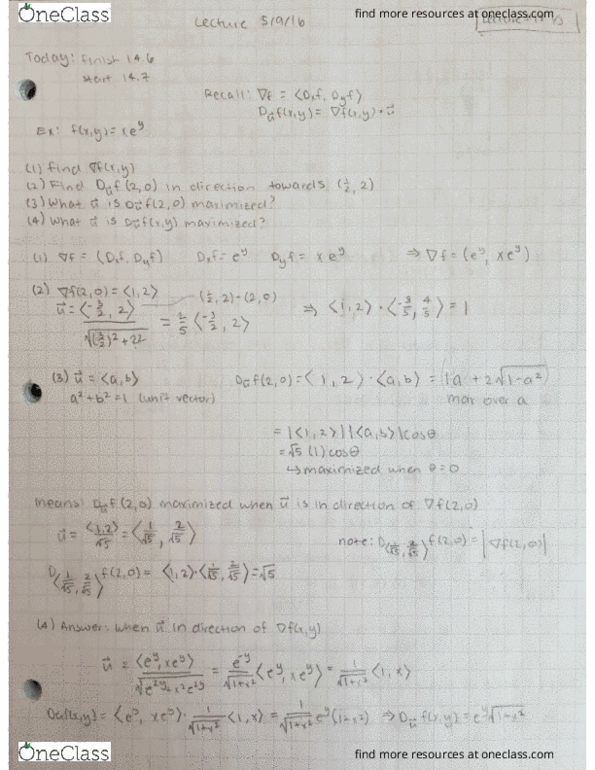 OneClass
find more resources at oneclass.com
Lecture 5/9/16
Today: finish 14.6
start 14.7
Recall: ∇f = ⟨Dxf, Dyf⟩
Dūf(x,y) = ∇f(x,y)•ū
Ex: f(x,y)= xe^y
(1) Find ∇f(x,y)
(2) Find Dūf(2,0) in direction towards (½, 2)
(3) What ū is Dūf(2,0) maximized?
(4) What ū is Dūf(x,y) maximized?
(1) ∇f = ⟨Dxf, Dyf⟩ Dxf= e^y Dyf = xe^y ⇒ ∇f = ⟨e^y, xe^y⟩
(2) ∇f(2,0) = ⟨1,2⟩ (½,2)-(2,0)
ū = ⟨-3/2, 2⟩ / √((3/2)²+2²) = 2/5 ⟨-3/2, 2⟩ ⇒ ⟨1,2⟩ • ⟨-3/5, 4/5⟩ = 1
(3) ū = ⟨a,b⟩ Dūf(2,0) = ⟨1,2⟩ • ⟨a,b⟩ = 1a + 2√(1-a²)
a²+b²=1 (unit vector) max over a
= |⟨1,2⟩| |⟨a,b⟩| cosθ
= √5 (1) cosθ
↳ maximized when θ=0
means: Dūf(2,0) maximized when ū is in direction of ∇f(2,0)
ū = ⟨1,2⟩/√5 = ⟨1/√5, 2/√5⟩ note: D⟨1/√5, 2/√5⟩ f(2,0) = |∇f(2,0)|
D⟨1/√5, 2/√5⟩ f(2,0) = ⟨1,2⟩•⟨1/√5, 2/√5⟩ = √5
(4) Answer: when ū in direction of ∇f(x,y)
ū = ⟨e^y, xe^y⟩ / √(e^2y + x²e^2y) = e^-y/√(1+x²) ⟨e^y, xe^y⟩ = 1/√(1+x²) ⟨1, x⟩
Dūf(x,y) = ⟨e^y, xe^y⟩ • 1/√(1+x²) ⟨1,x⟩ = 1/√(1+x²) e^y(1+x²) ⇒ Dūf(x,y) = e^y√(1+x²)
OneClass
find more resources at oneclass.com